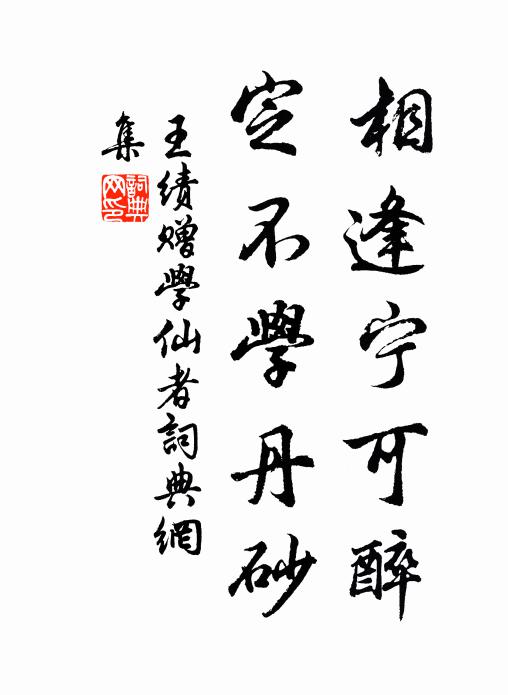 相逢宁可醉
定不學丹砂
王绩赠學仙者詞典網
集
詞典
网印